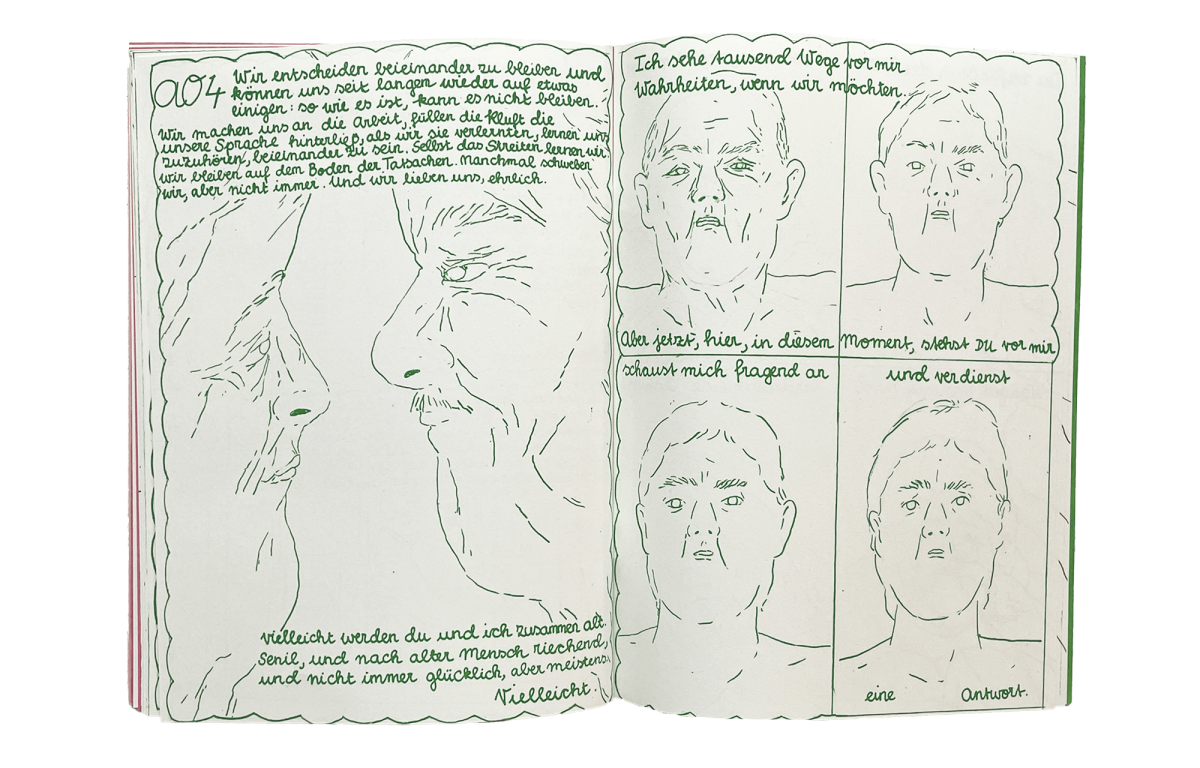 a04 Wir entscheiden beieinander zu bleiben und
können uns seit langen wieder auf etwas
einigen: so wie es ist, kann es nicht bleiben.
Wir machen uns an die Arbeit, füllen die Kluft die
unsere Sprache hinterließ, als wir sie verlernten, lernen uns
zuzuhören, beieinander zu sein. Selbst das Streiten lernen wir.
wir bleiben auf dem Boden der Tatsachen. Manchmal schweben
wir, aber nicht immer. Und wir lieben uns, ehrlich.
vielleicht werden du und ich zusammen alt.
Senil, und nach alter Mensch riechend,
und nicht immer glücklich, aber meistens.
Vielleicht.
Ich sehe tausend Wege vor mir
Wahrheiten, wenn wir möchten.
Aber jetzt, hier, in diesem Moment, stehst DU vor mir
schaust mich fragend an
und verdienst
eine Antwort.